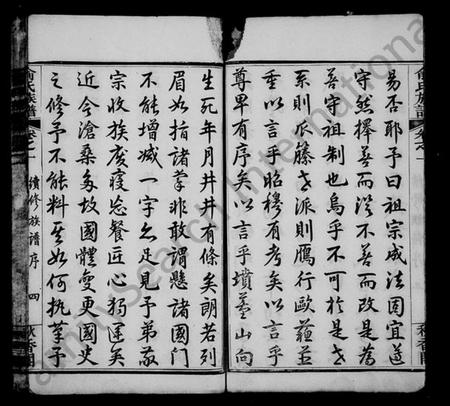 易否耶予曰祖宗成法固宜遵
守然擇善而從不善而改是為
善守祖制也烏乎不可於是
系則瓜藤
派則雁行歐蘇並
垂以言乎昭穆有考矣以言乎
尊卑有序矣以言乎墳墓山向
生死年月井井有條矣朗若列
眉如指諸掌非敢謂懸諸國門
不能增減一字亦足見予弟敬
宗收族廢寢忘餐匠心獨運矣
近今滄桑多故國體變更國史
之修予不能料其如何執筆予
俞氏族譜 卷之一 續修族譜序 四
俞氏族譜 卷之一
Ancestry International